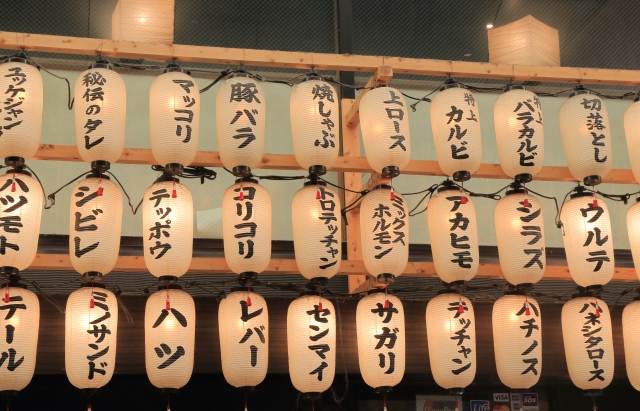 ユッケジャン
秘伝のタレ
マッコリ
豚バラ
焼しゃぶ
上ロース
特上
カルビ
特上
バラカルビ
切落とし
ハツモト
シビレ
テッポウ
コリコリ
トロテッチャン
ミックス
ホルモン
アカヒモ
シラス
ウルテ
テール
ミノサンド
ハツ
レバー
センマイ
サガリ
テッチャン
ハチノス
ハネシタロース
VISA